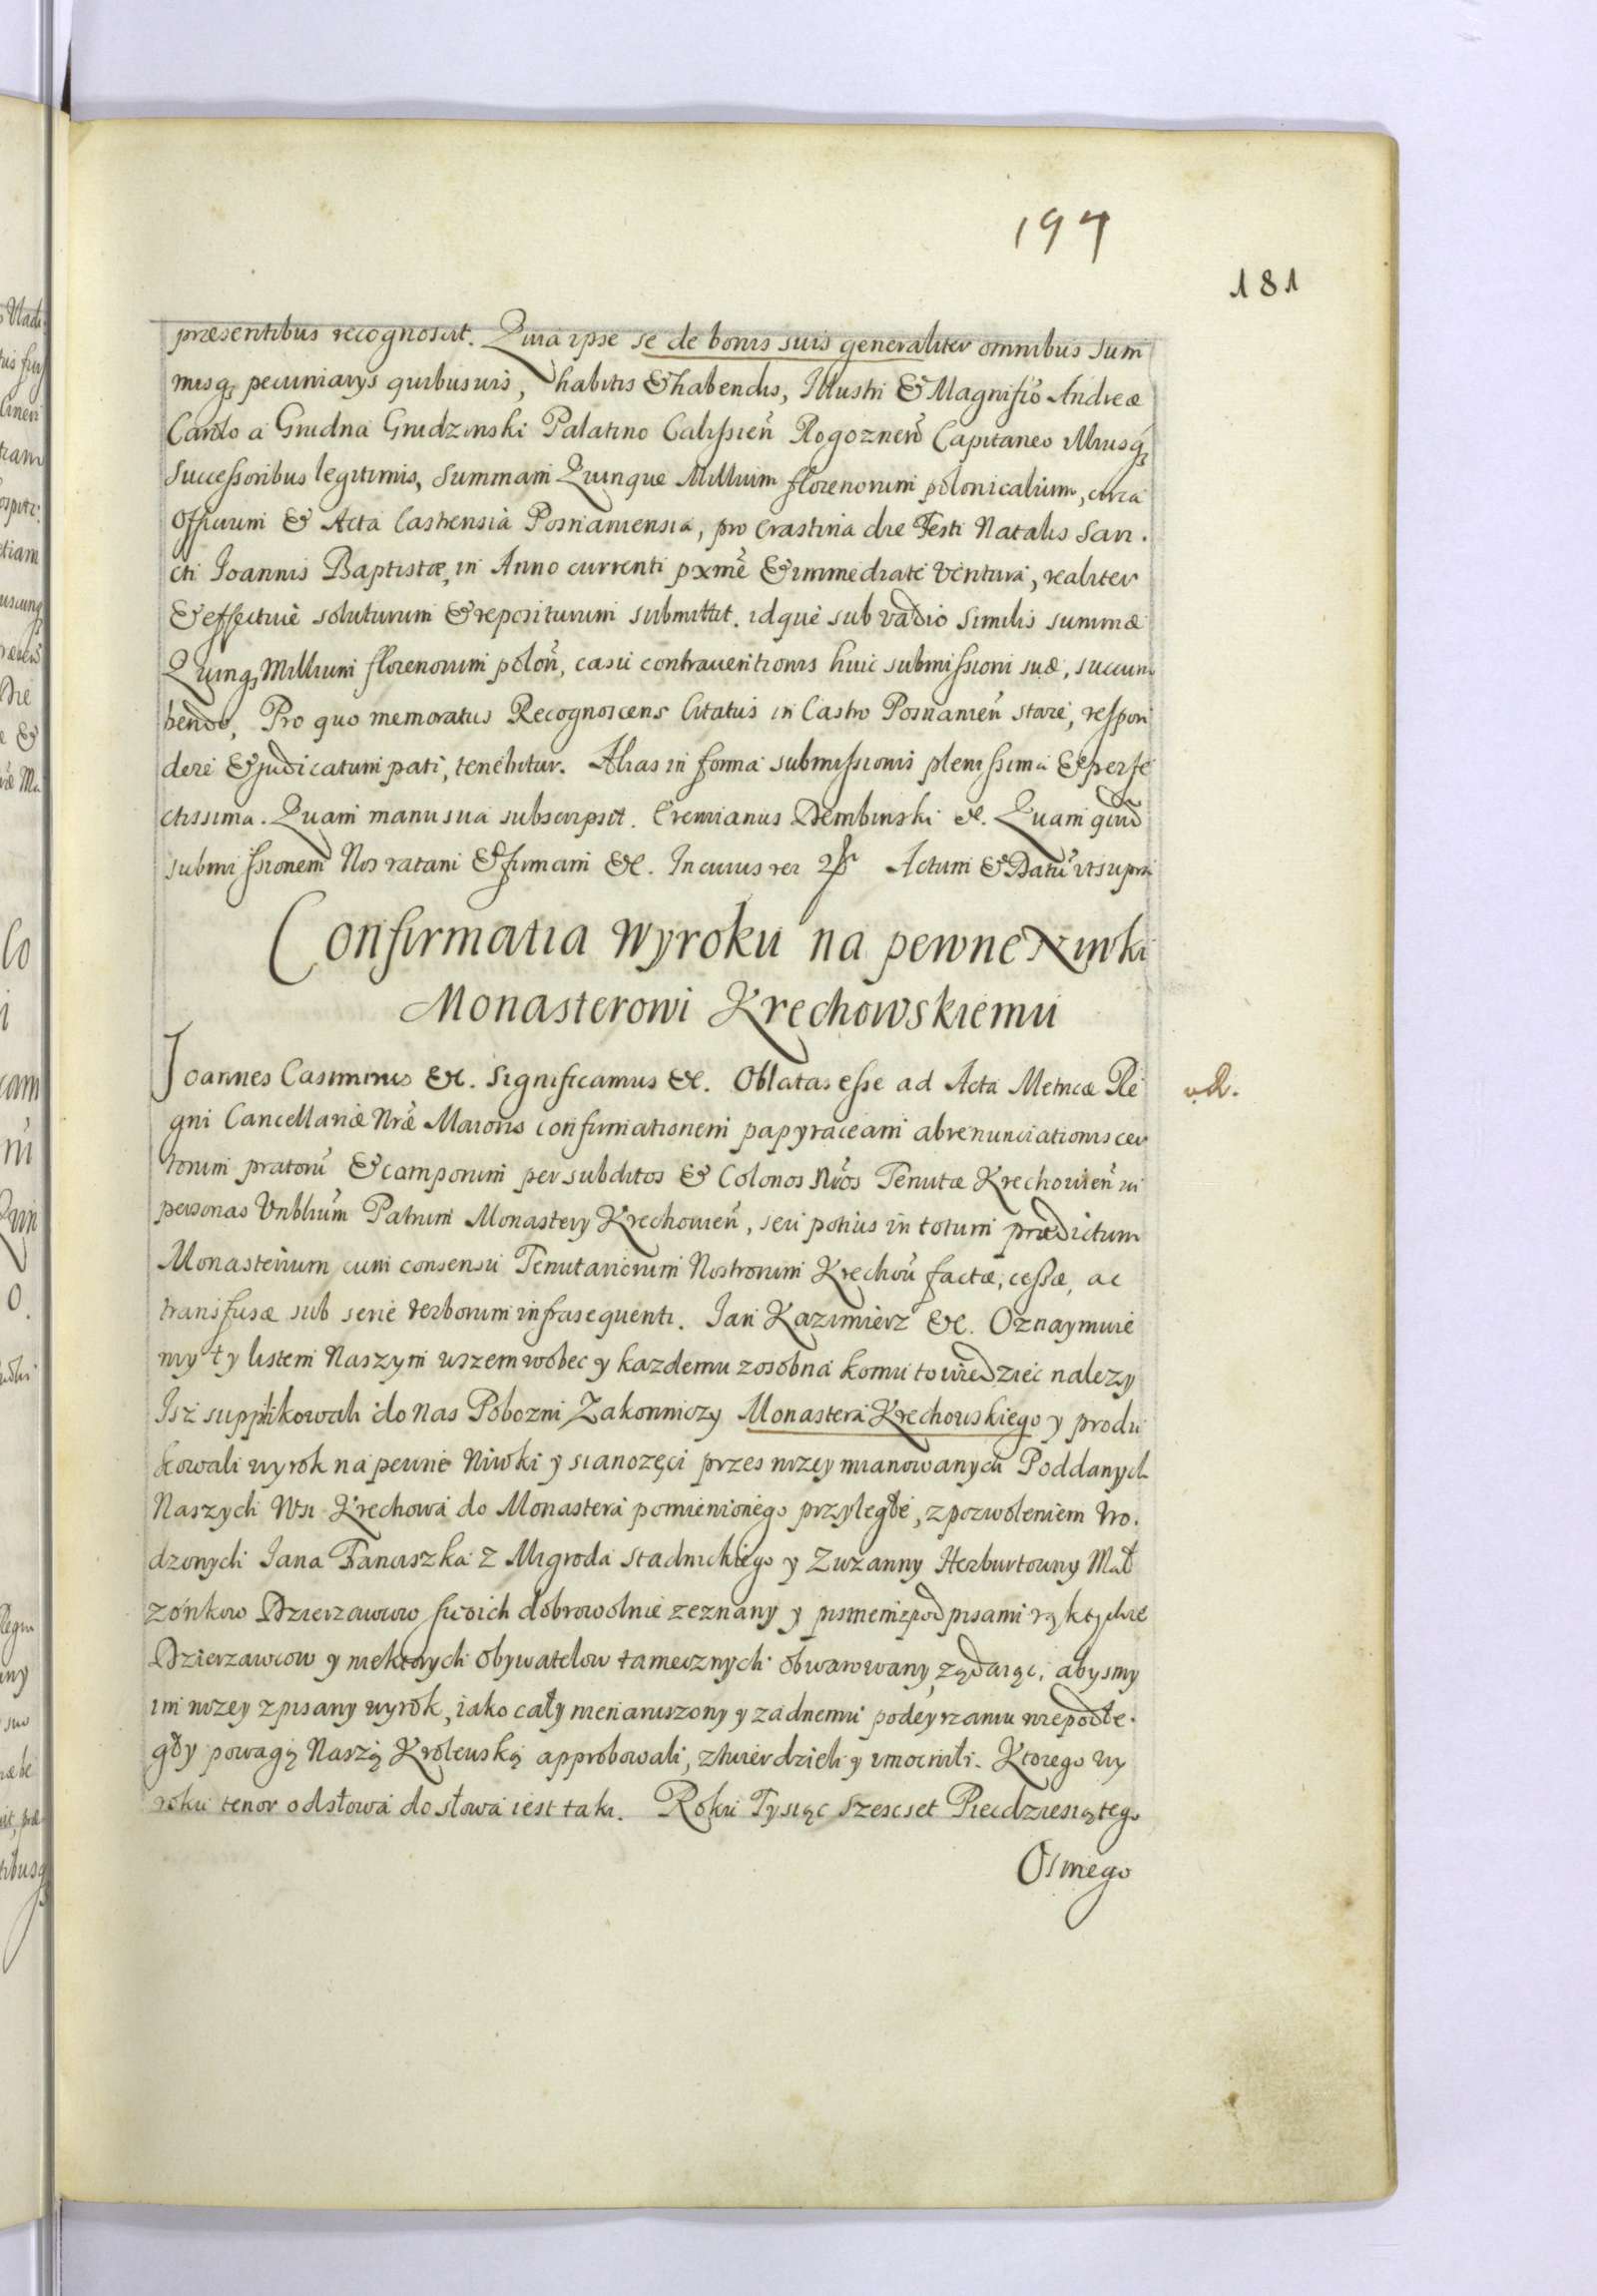 197
181
præsentibus recognoscit. Quia ipse se de bonis suis generaliter omnibus sum
misq₃ pecuniarys quibusuis, habitis & habendis, Illustri & Magnifio Andreæ
Carolo a Grudna Grudzinski Palatino Calissien̄ Rogoznen̄ Capitaneo Illiusq₃
Successoribus legitimis, Summam Quinque Millium florenorum polonicalium, circa
Officium & Acta Castrensia Posnaniensia, pro crastina die Festi Natalis San.
cti Joannis Baptistæ, in Anno currenti pxme & immediate ventura, realiter
& effectiue soluturum & repositurum submittit. idque sub vadio similis summæ
Quinq₃ Millium florenorum polon̄, casu contrauentionis huic submissioni suæ, succum
bendo, Pro quo memoratus Recognoscens Citatus in Castro Posnanien̄ stare, respon
dere & judicatum pati, tenebitur. Alias in forma submissionis plenissima & perfe
ctissima. Quam manu sua subscripsit. Dembinski &. Quam quid
submissionem Nos ratam & firmam &c. In cuius rei Actum & Datū vt supra
Confirmatia Wyroku na pewne Niwki
Monasterowi Krechowskiemu
Joannes Casimirus &c. Significamus &c. Oblatas esse ad Acta Metricæ Re
gni Cancellariæ Nræ Maioris confirmationem papyraceam abrenunciationis cer
torum pratorū & camporum per subditos & Colonos Nros Tenutæ Krechouien̄ in
personas Vnblium Patrum Monastery Krechouien̄, seu potius in totum prædictum
Monasterium cum consensu Tenutariorum Nostrorum Krechoū factæ, cessæ, ac
transfusæ sub serie verborum infrasequenti. Jan Kazimierz &c. Oznaymuie
my ty listem Naszym wszem wobec y kazdemu zosobna komu to wiedziec nalezy
Isz supplikowali do Nas Pobozni Zakonniczy Monastera Krechouskiego y produ
kowali wyrok na pewne Niwki y sianozęci przes nizey mianowanych Poddanych
Naszych Wsi Krechowa do Monastera pomienionego przyległe, z pozwoleniem Vro.
dzonych Iana Franciszka z Migroda Stadnickiego y Zuzanny Herburtowny Mał
zonkow Dzierzawcow swoich dobrowolnie zeznany y pismem zpodpisami rąk tychze
Dzierzawcow y niektorych obywatelow tamecznych obwarowany, ządaiąc, abysmy
im nizey zpisany wyrok, iako cały nienaruszony y zadnemu podeyrzaniu niepodle.
gły powagą Naszą Krolewską approbowali, ztwierdzieli y vmocnili. Ktorego wy
roku tenor odsłowa do słowa iest taki. Roku Tysiąc Szescset Piecdziesiątego
Osmego